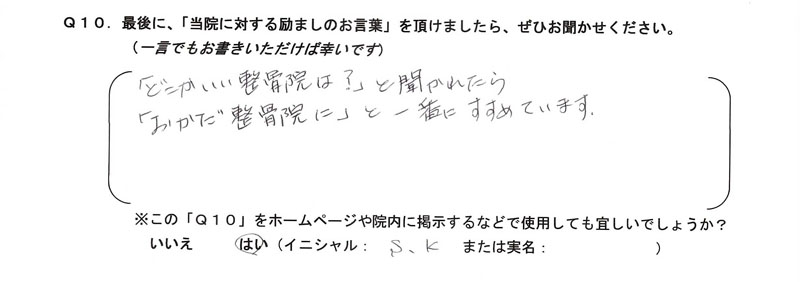 Q10．最後に、「当院に対する励ましのお言葉」を頂けましたら、ぜひお聞かせください。
（一言でもお書きいただけば幸いです）
「どこかいい整骨院は？」と聞かれたら
「おかだ整骨院に」と一番にすすめています.
※この「Q10」をホームページや院内に掲示するなどで使用しても宜しいでしょうか？
いいえ　はい（イニシャル： S、K　または実名：　）